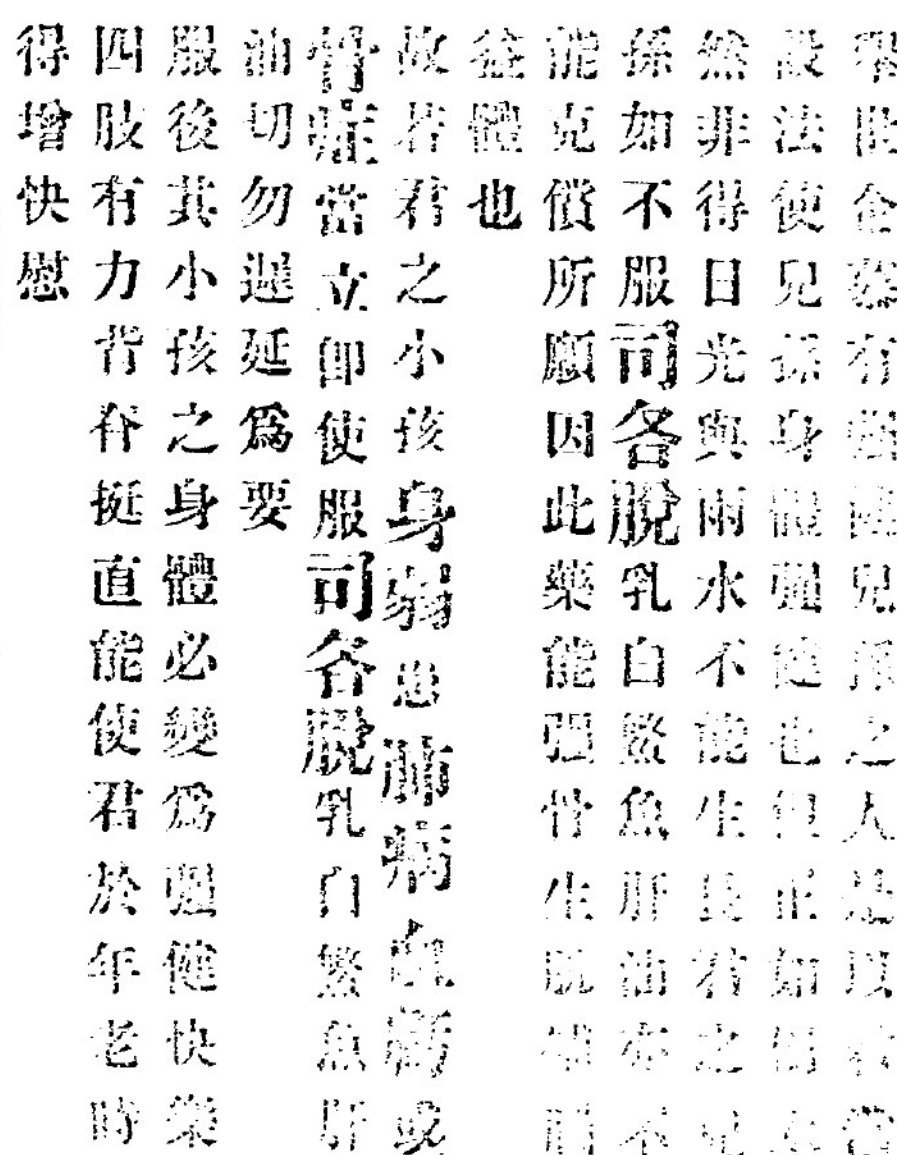 舉世企慕有強健兒孫之人是以君當
設法使兒孫身體強健也但正如樹木
然非得日光與雨水不能生長君之兒
孫如不服司各脫乳白鰵魚肝油亦不
能克償所願因此藥能強骨生肌補腦
益體也
故若君之小孩身弱患肺病血虧或
骨症當立即使服司各脫乳白鰵魚肝
油切勿遲延爲要
服後其小孩之身體必變爲強健快樂
四肢有力背脊挺直能使君於年老時
得增快慰